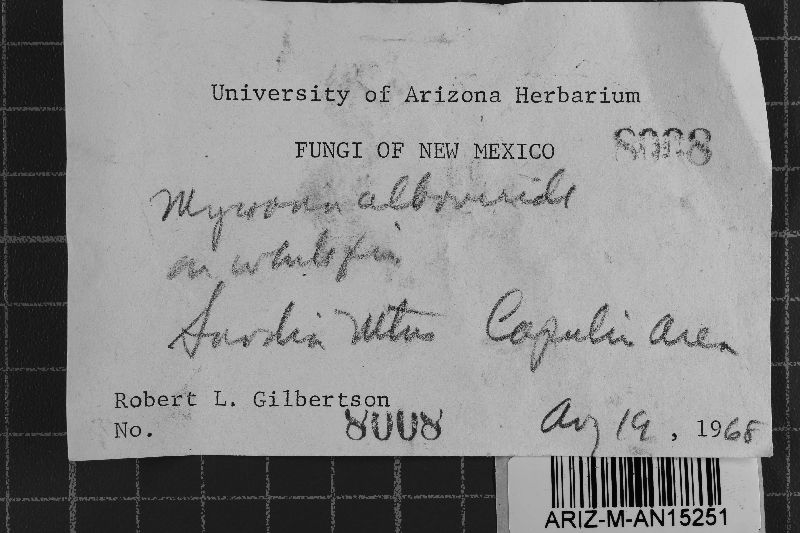 University of Arizona Herbarium
FUNGI OF NEW MEXICO 8008
alboviride
on white fir
Sandia Mtns Capulin Area
Robert L. Gilbertson
No. 8008 Aug 19, 1968
ARIZ-M-AN15251